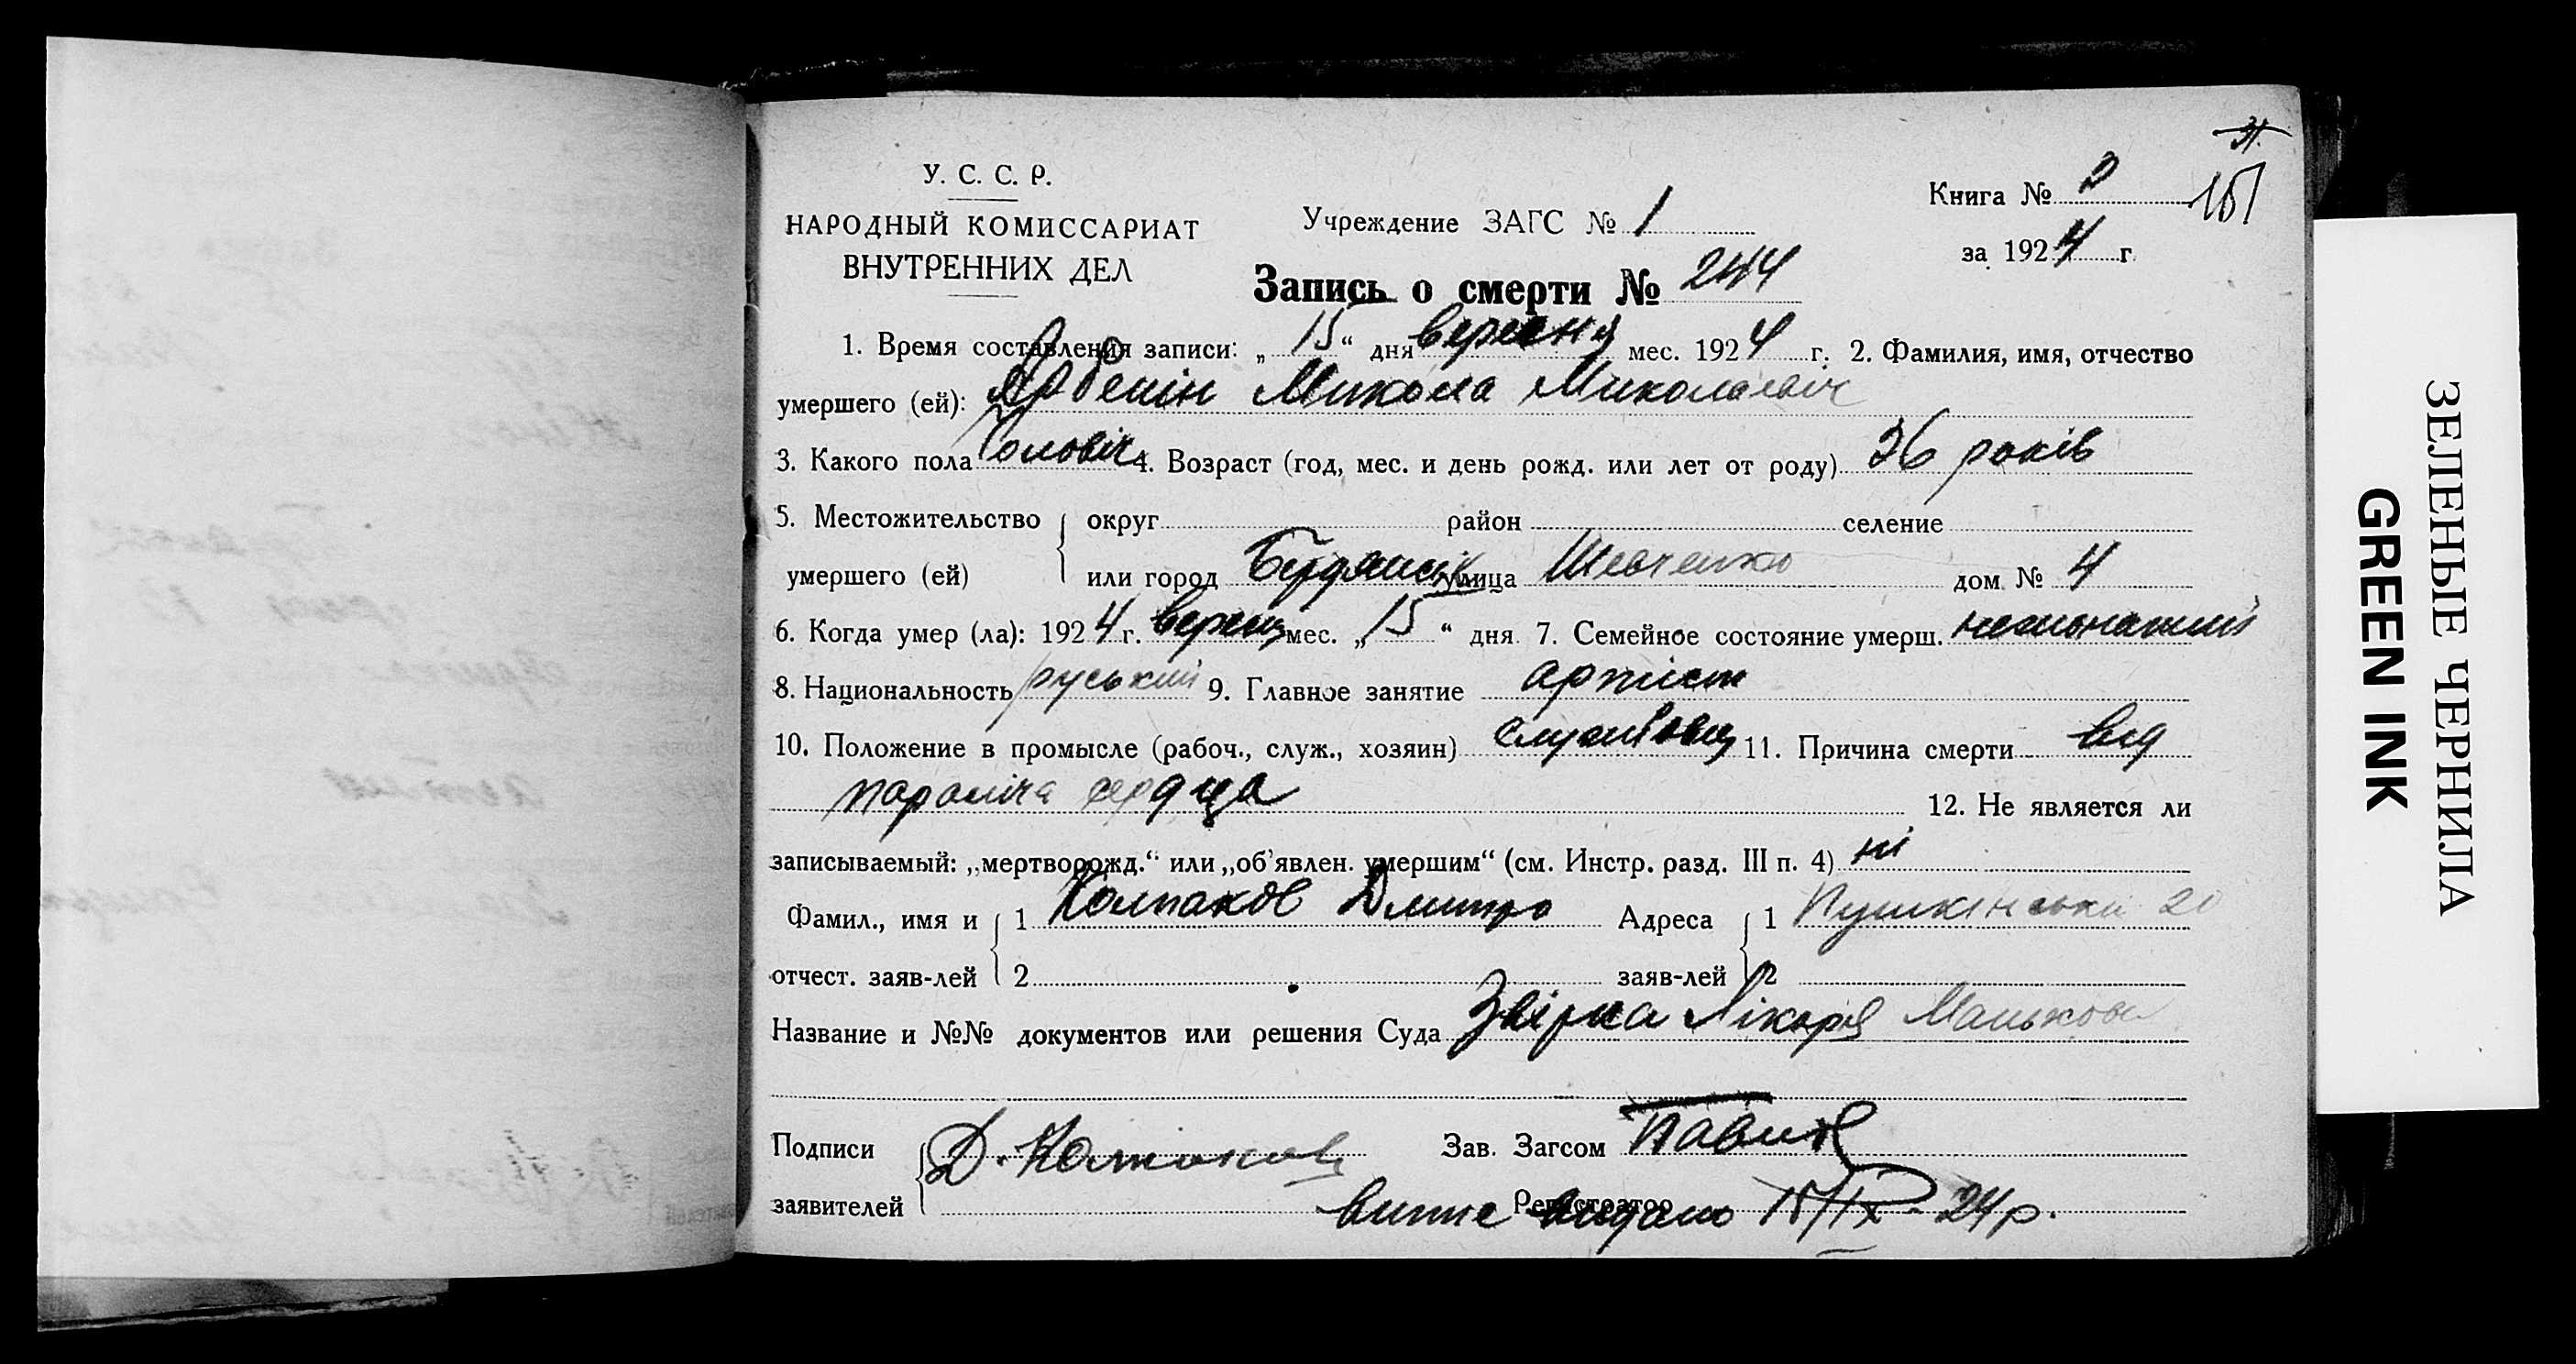 У. С. С. Р.
НАРОДНЫЙ КОМИССАРИАТ
ВНУТРЕННИХ ДЕЛ
Учреждение ЗАГС № 1
Книга № 2
151
за 1924 г.
Запись о смерти № 244
1. Время составления записи: „ 15 “ дня вересня мес. 1924 г. 2. Фамилия, имя, отчество
умершего (ей): Арбенін Микола Миколаевич
3. Какого пола Чоловіч 4. Возраст (год, мес. и день рожд. или лет от роду) 36 років
5. Местожительство округ район селение
умершего (ей) или город Бердянськ улица Шевченко дом № 4
6. Когда умер (ла): 1924 г. вересня мес. „ 15 “ дня 7. Семейное состояние умерш. нежонатий
8. Национальность руський 9. Главное занятие артист
10. Положение в промысле (рабоч., служ., хозяин) службовец 11. Причина смерти від
параліча сердца 12. Не является ли
записываемый: „мертворожд.“ или „об’явлен. умершим“ (см. Инстр. разд. III п. 4) ні
Фамил., имя и 1 Колпаков Дмитро Адреса 1 Пушкінська 20
отчест. заяв-лей 2 заяв-лей 2
Название и №№ документов или решения Суда лікаря
Подписи Д. Колпаков Зав. Загсом
заявителей Регистратор
видано 15/IX - 24 р.
ЗЕЛЕНЫЕ ЧЕРНИЛА
GREEN INK